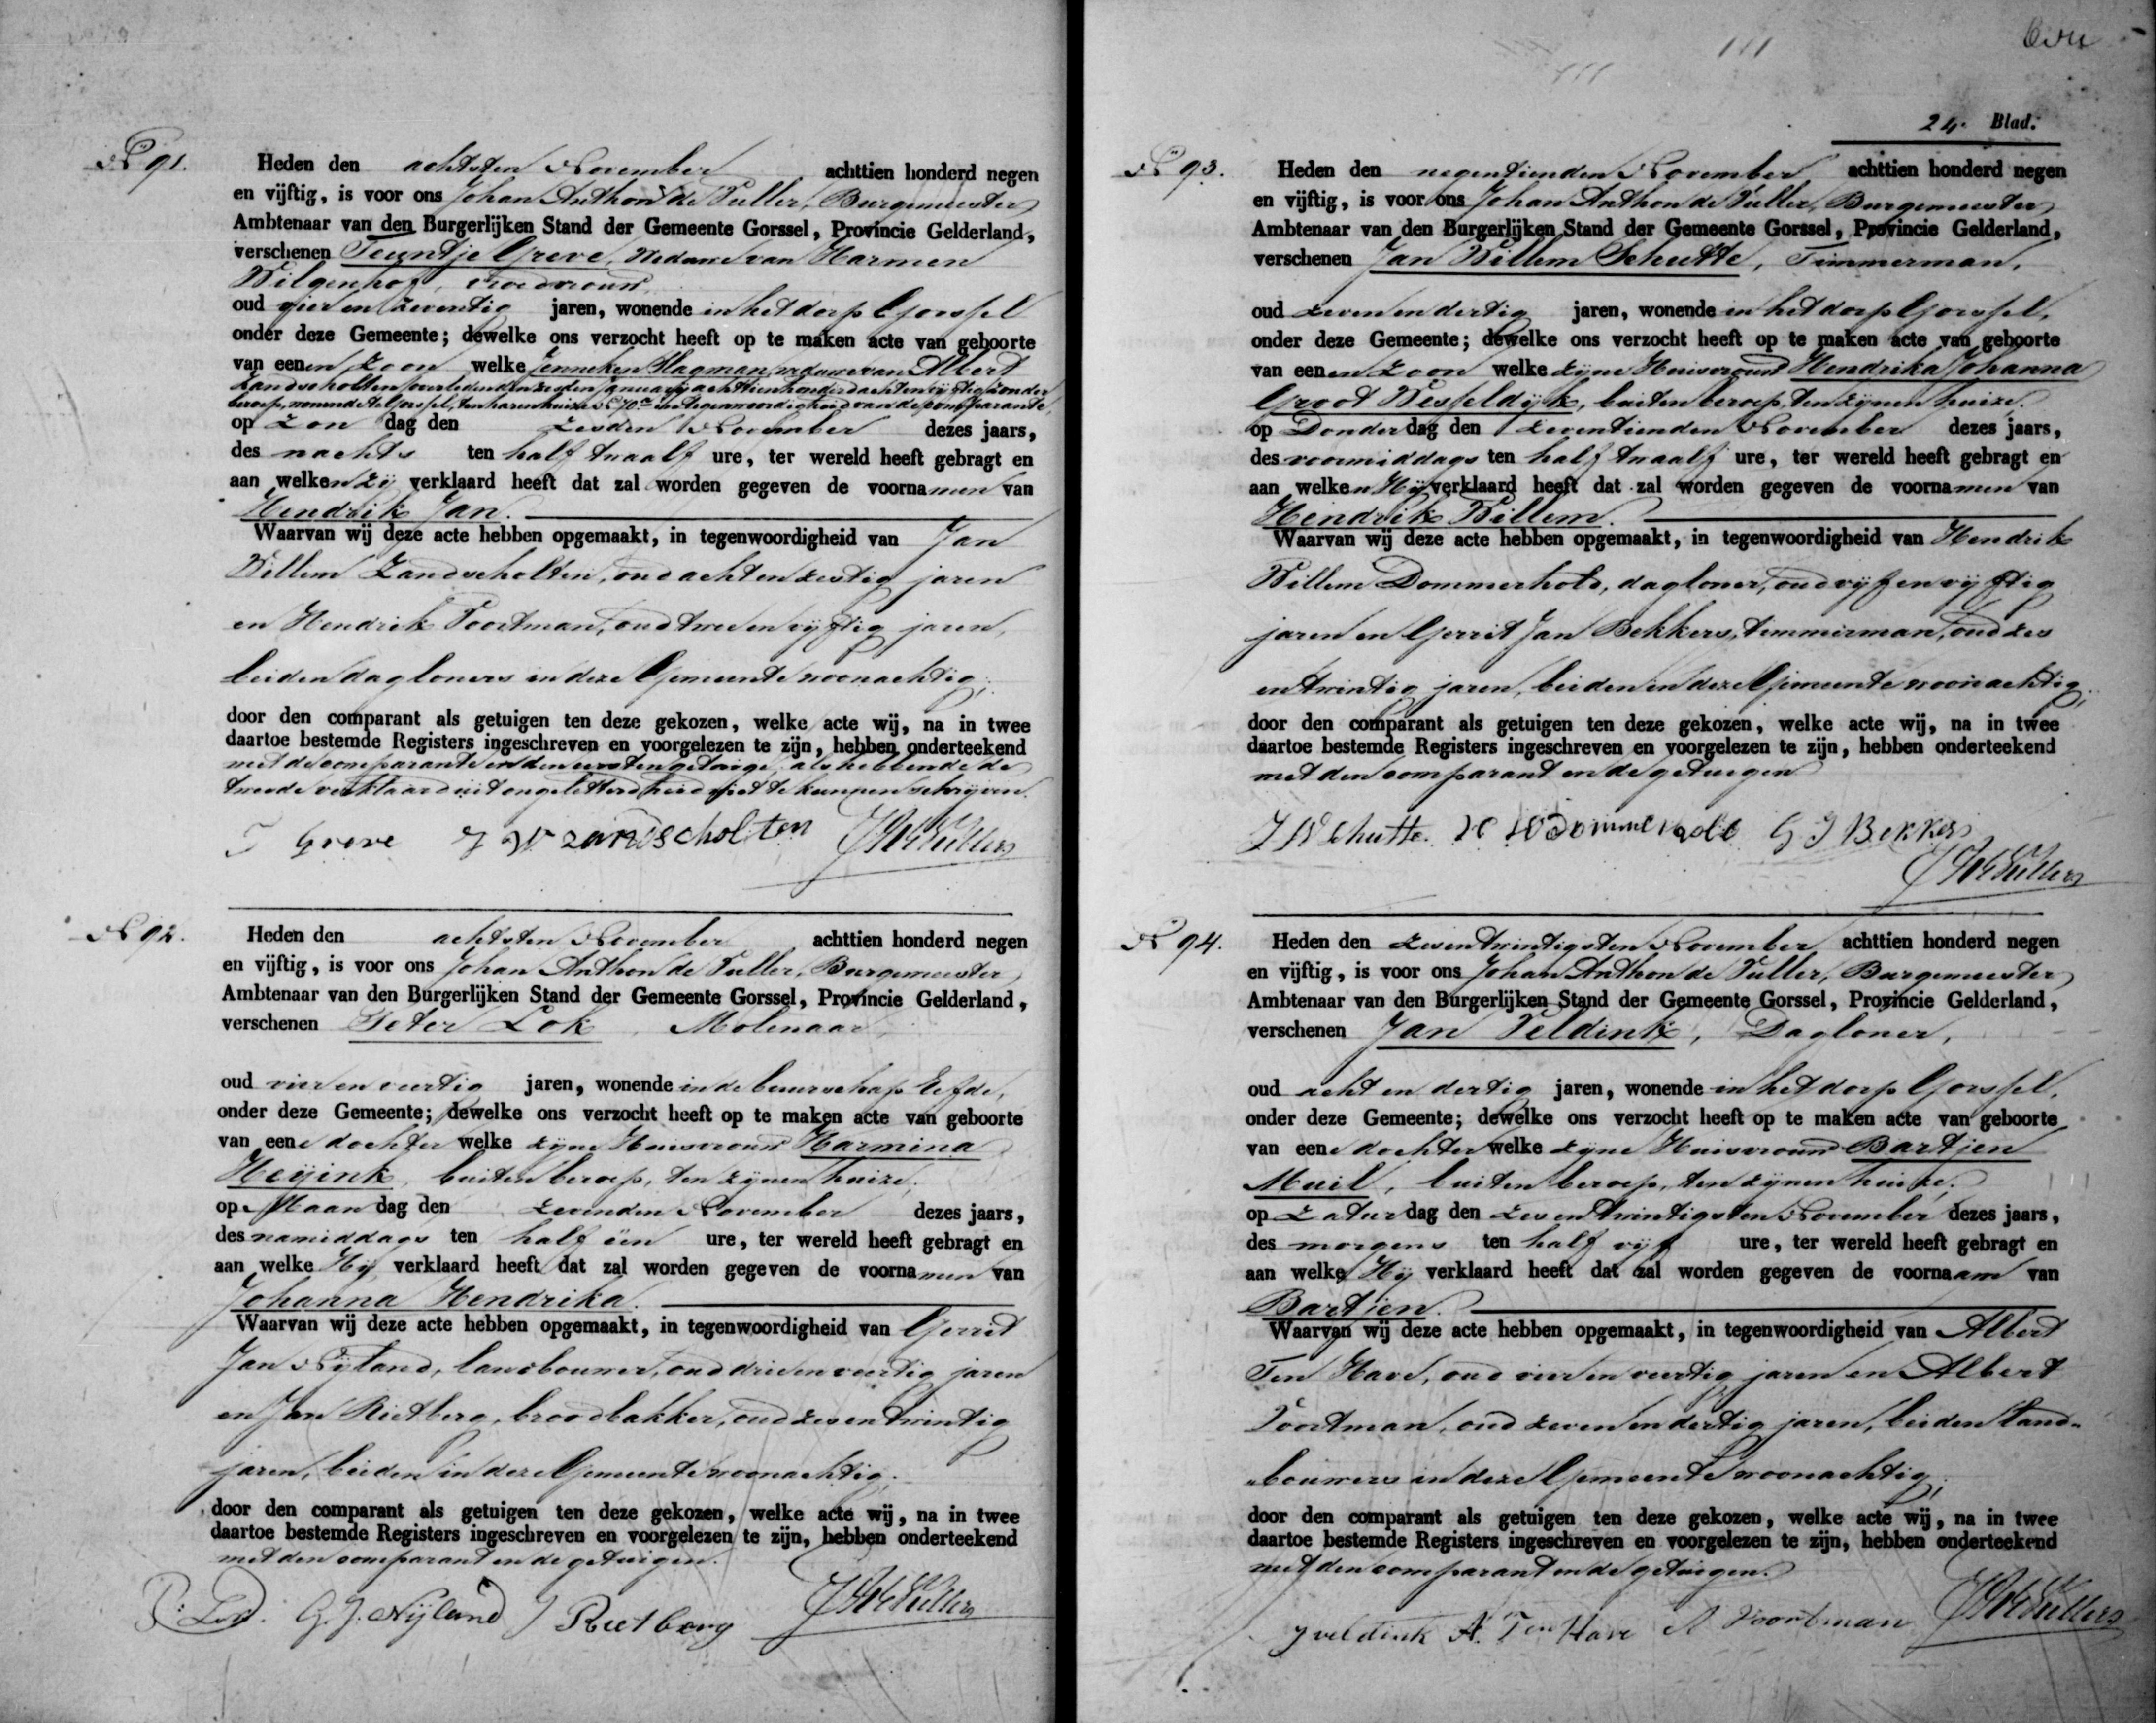 No 91.
Heden den achtsten November achttien honderd negen
en vijftig, is voor ons Johan Anthon de Vuller, Burgemeester
Ambtenaar van den Burgerlijken Stand der Gemeente Gorssel, Provincie Gelderland,
verschenen Teuntje Greve, Weduwe van Harmen
Wilgenhof, Vroedvrouw
oud vier en zeventig jaren, wonende in het dorp Gorssel
onder deze Gemeente; dewelke ons verzocht heeft op te maken acte van geboorte
van eenen zoon welke Jenneken Hagman, weduwe van Albert
Zandscholten, overleden den zesden Januarij achttienhonderd acht en vijftig, zonder
beroep, wonende te Gorssel, ten haren huize in tegenwoordigheid van de comparante,
op Zondag den zesden November dezes jaars,
des nachts ten half twaalf ure, ter wereld heeft gebragt en
aan welken zij verklaard heeft dat zal worden gegeven de voornamen van
Hendrik Jan.
Waarvan wij deze acte hebben opgemaakt, in tegenwoordigheid van Jan
Willem Zandscholten, oud acht en zestig jaren
en Hendrik Voortman, oud twee en vijftig jaren,
beiden dagloners in deze Gemeente woonachtig,
door den comparant als getuigen ten deze gekozen, welke acte wij, na in twee
daartoe bestemde Registers ingeschreven en voorgelezen te zijn, hebben onderteekend
met de comparante en den eersten getuige, als hebbende de
tweede verklaard uit ongeletterdheid niet te kunnen schrijven.
T Greve J W Zandscholten
No 92.
Heden den achtsten November achttien honderd negen
en vijftig, is voor ons Johan Anthon de Vuller, Burgemeester
Ambtenaar van den Burgerlijken Stand der Gemeente Gorssel, Provincie Gelderland,
verschenen Peter Lok, Molenaar,
oud vier en veertig jaren, wonende in de buurschap Eefde,
onder deze Gemeente; dewelke ons verzocht heeft op te maken acte van geboorte
van eene dochter welke zijne Huisvrouw Harmina
Heijink, buiten beroep, ten zijnen huize,
op Maandag den zevenden November dezes jaars,
des namiddags ten half een ure, ter wereld heeft gebragt en
aan welke Hij verklaard heeft dat zal worden gegeven de voornamen van
Johanna Hendrika.
Waarvan wij deze acte hebben opgemaakt, in tegenwoordigheid van Gerrit
Jan Nijland, landbouwer, oud drie en veertig jaren
en Jan Rietberg, broodbakker, oud zes en twintig
jaren, beiden in deze Gemeente woonachtig,
door den comparant als getuigen ten deze gekozen, welke acte wij, na in twee
daartoe bestemde Registers ingeschreven en voorgelezen te zijn, hebben onderteekend
met den comparant en de getuigen.
P: Lok. G. J. Nijland J Rietberg
24. Blad.
No 93.
Heden den negentienden November achttien honderd negen
en vijftig, is voor ons Johan Anthon de Vuller, Burgemeester
Ambtenaar van den Burgerlijken Stand der Gemeente Gorssel, Provincie Gelderland,
verschenen Jan Willem Schutte, Timmerman,
oud zeven en dertig jaren, wonende in het dorp Gorssel,
onder deze Gemeente; dewelke ons verzocht heeft op te maken acte van geboorte
van eenen zoon welke zijne Huisvrouw Hendrika Johanna
Groot Wesseldijk, buiten beroep, ten zijnen huize,
op Donderdag den zeventienden November dezes jaars,
des voormiddags ten half twaalf ure, ter wereld heeft gebragt en
aan welken Hij verklaard heeft dat zal worden gegeven de voornamen van
Hendrik Willem.
Waarvan wij deze acte hebben opgemaakt, in tegenwoordigheid van Hendrik
Willem Dommerholt, dagloner, oud vijf en vijftig
jaren en Gerrit Jan Bekkers, timmerman, oud zes
en twintig jaren, beiden in deze Gemeente woonachtig,
door den comparant als getuigen ten deze gekozen, welke acte wij, na in twee
daartoe bestemde Registers ingeschreven en voorgelezen te zijn, hebben onderteekend
met den comparant en de getuigen
J W Schutte. H W Dommerholt G J Bekkers
No 94.
Heden den zes en twintigsten November achttien honderd negen
en vijftig, is voor ons Johan Anthon de Vuller, Burgemeester
Ambtenaar van den Burgerlijken Stand der Gemeente Gorssel, Provincie Gelderland,
verschenen Jan Veldink, Dagloner,
oud acht en dertig jaren, wonende in het dorp Gorssel,
onder deze Gemeente; dewelke ons verzocht heeft op te maken acte van geboorte
van eene dochter welke zijne Huisvrouw Bartjen
Muil, buiten beroep, ten zijnen huize,
op Zaturdag den zes en twintigsten November dezes jaars,
des morgens ten half vijf ure, ter wereld heeft gebragt en
aan welke Hij verklaard heeft dat zal worden gegeven de voornaam van
Bartjen.
Waarvan wij deze acte hebben opgemaakt, in tegenwoordigheid van Albert
Ten Have, oud vier en veertig jaren en Albert
Voortman, oud zeven en dertig jaren, beiden land-
bouwers in deze Gemeente woonachtig,
door den comparant als getuigen ten deze gekozen, welke acte wij, na in twee
daartoe bestemde Registers ingeschreven en voorgelezen te zijn, hebben onderteekend
met den comparant en de getuigen.
J veldink A. Ten Have A Voortman